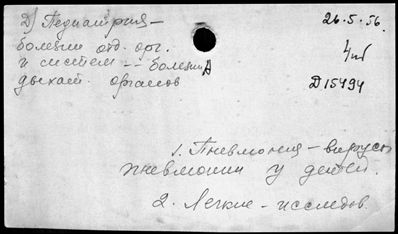 2) Педиатрия – 26.5.56.
болезни отд. орг.
и систем -- болезни
дыхат. органов Д15494
1. Пневмония – вирусн
пневмонии у детей.
2. Легкие – исследов.